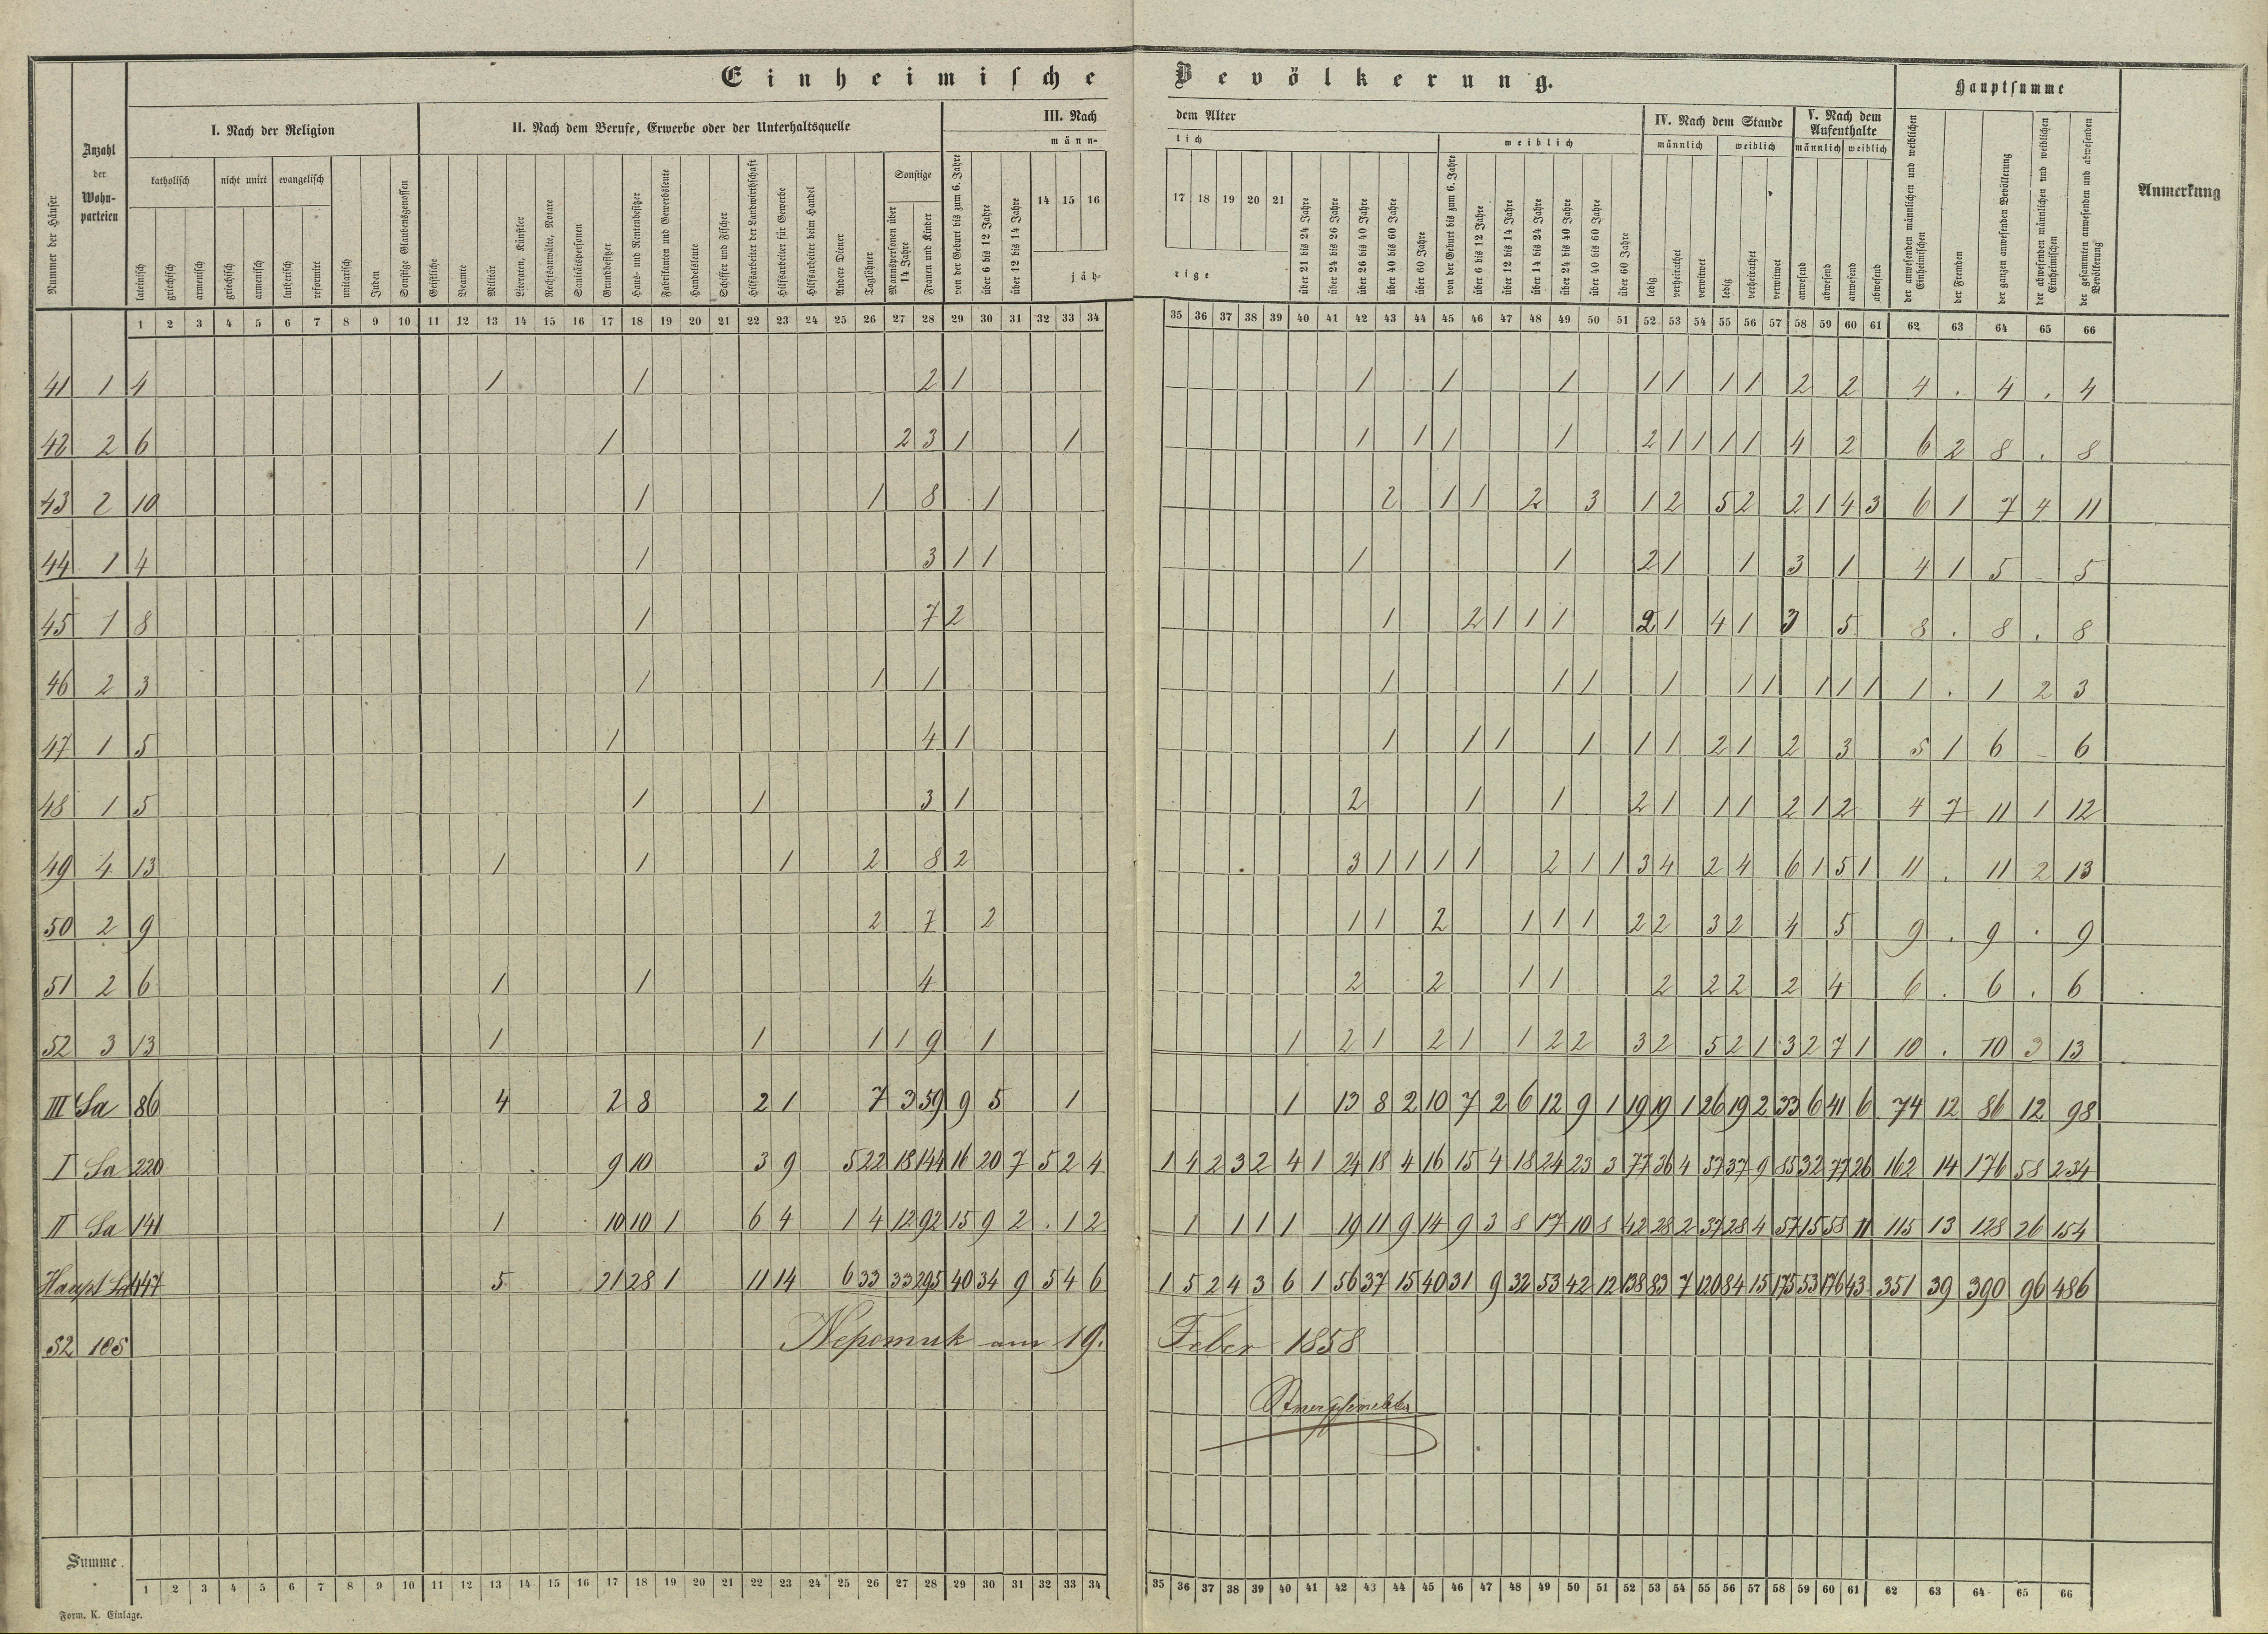 Einheimische Bevölkerung.
Hauptsumme
Nummer der Häuser
Anzahl
der
Wohn-
parteien
I. Nach der Religion
II. Nach dem Berufe, Erwerbe oder der Unterhaltsquelle
III. Nach dem Alter
IV. Nach dem Stande
V. Nach dem Aufenthalte
Anmerkung
katholisch
nicht unirt
evangelisch
Sonstige
männlich
weiblich
männlich
weiblich
männlich
weiblich
lateinisch
griechisch
armenisch
griechisch
armenisch
lutherisch
reformirt
unitarisch
Juden
Sonstige Glaubensgenossen
Geistliche
Beamte
Militär
Literaten, Künstler
Rechtsanwälte, Notare
Sanitätspersonen
Grundbesitzer
Haus- und Rentenbesitzer
Fabrikanten und Gewerbsleute
Handelsleute
Schiffer und Fischer
Hilfsarbeiter der Landwirthschaft
Hilfsarbeiter für Gewerbe
Hilfsarbeiter beim Handel
Andere Diener
Taglöhner
Mannspersonen über 14 Jahre
Frauen und Kinder
von der Geburt bis zum 6. Jahre
über 6 bis 12 Jahre
über 12 bis 14 Jahre
14 15 16 17 18 19 20 21
jährige
über 21 bis 24 Jahre
über 24 bis 26 Jahre
über 26 bis 40 Jahre
über 40 bis 60 Jahre
über 60 Jahre
von der Geburt bis zum 6. Jahre
über 6 bis 12 Jahre
über 12 bis 14 Jahre
über 14 bis 24 Jahre
über 24 bis 40 Jahre
über 40 bis 60 Jahre
über 60 Jahre
ledig
verheirathet
verwitwet
ledig
verheirathet
verwitwet
anwesend
abwesend
anwesend
abwesend
der anwesenden männlichen und weiblichen Einheimischen
der Fremden
der ganzen anwesenden Bevölkerung
der abwesenden männlichen und weiblichen Einheimischen
der gesammten anwesenden und abwesenden Bevölkerung
1 2 3 4 5 6 7 8 9 10 11 12 13 14 15 16 17 18 19 20 21 22 23 24 25 26 27 28 29 30 31 32 33 34 35 36 37 38 39 40 41 42 43 44 45 46 47 48 49 50 51 52 53 54 55 56 57 58 59 60 61 62 63 64 65 66
41 1 4 1 1 2 1 1 1 1 1 1 1 1 2 2 4 . 4 . 4
42 2 6 1 2 3 1 1 1 1 1 1 2 1 1 1 1 4 2 6 2 8 . 8
43 2 10 1 1 8 1 2 1 1 2 3 1 2 5 2 2 1 4 3 6 1 7 4 11
44 1 4 1 3 1 1 1 1 2 1 1 3 1 4 1 5 5
45 1 8 1 7 2 1 2 1 1 1 2 1 4 1 3 5 8 . 8 . 8
46 2 3 1 1 1 1 1 1 1 1 1 1 1 1 1 . 1 2 3
47 1 5 1 4 1 1 1 1 1 1 1 2 1 2 3 5 1 6 6
48 1 5 1 1 3 1 2 1 1 2 1 1 1 2 1 2 4 7 11 1 12
49 4 13 1 1 1 2 8 2 3 1 1 1 1 2 1 1 3 4 2 4 6 1 5 1 11 . 11 2 13
50 2 9 2 7 2 1 1 2 1 1 1 2 2 3 2 4 5 9 . 9 . 9
51 2 6 1 1 4 2 2 1 1 2 2 2 2 4 6 . 6 . 6
52 3 13 1 1 1 1 9 1 1 2 1 2 1 1 2 2 3 2 5 2 1 3 2 7 1 10 . 10 3 13
III Sa 86 4 2 8 2 1 7 3 59 9 5 1 1 13 8 2 10 7 2 6 12 9 1 19 19 1 26 19 2 33 6 41 6 74 12 86 12 98
I Sa 220 9 10 3 9 5 22 18 144 16 20 7 5 2 4 1 4 2 3 2 4 1 24 18 4 16 15 4 18 24 23 3 77 36 4 57 37 9 85 32 77 26 162 14 176 58 234
II Sa 141 1 10 10 1 6 4 1 4 12 92 15 9 2 . 1 2 1 1 1 1 19 11 9 14 9 3 8 17 10 8 42 28 2 37 28 4 57 15 58 11 115 13 128 26 154
Haupt Sa 447 5 21 28 1 11 14 6 33 33 295 40 34 9 5 4 6 1 5 2 4 3 6 1 56 37 15 40 31 9 32 53 42 12 138 83 7 120 84 15 175 53 176 43 351 39 390 96 486
52 105 Nepomuk am 19. Feber 1858
Summe.
1 2 3 4 5 6 7 8 9 10 11 12 13 14 15 16 17 18 19 20 21 22 23 24 25 26 27 28 29 30 31 32 33 34 35 36 37 38 39 40 41 42 43 44 45 46 47 48 49 50 51 52 53 54 55 56 57 58 59 60 61 62 63 64 65 66
Form. K. Einlage.